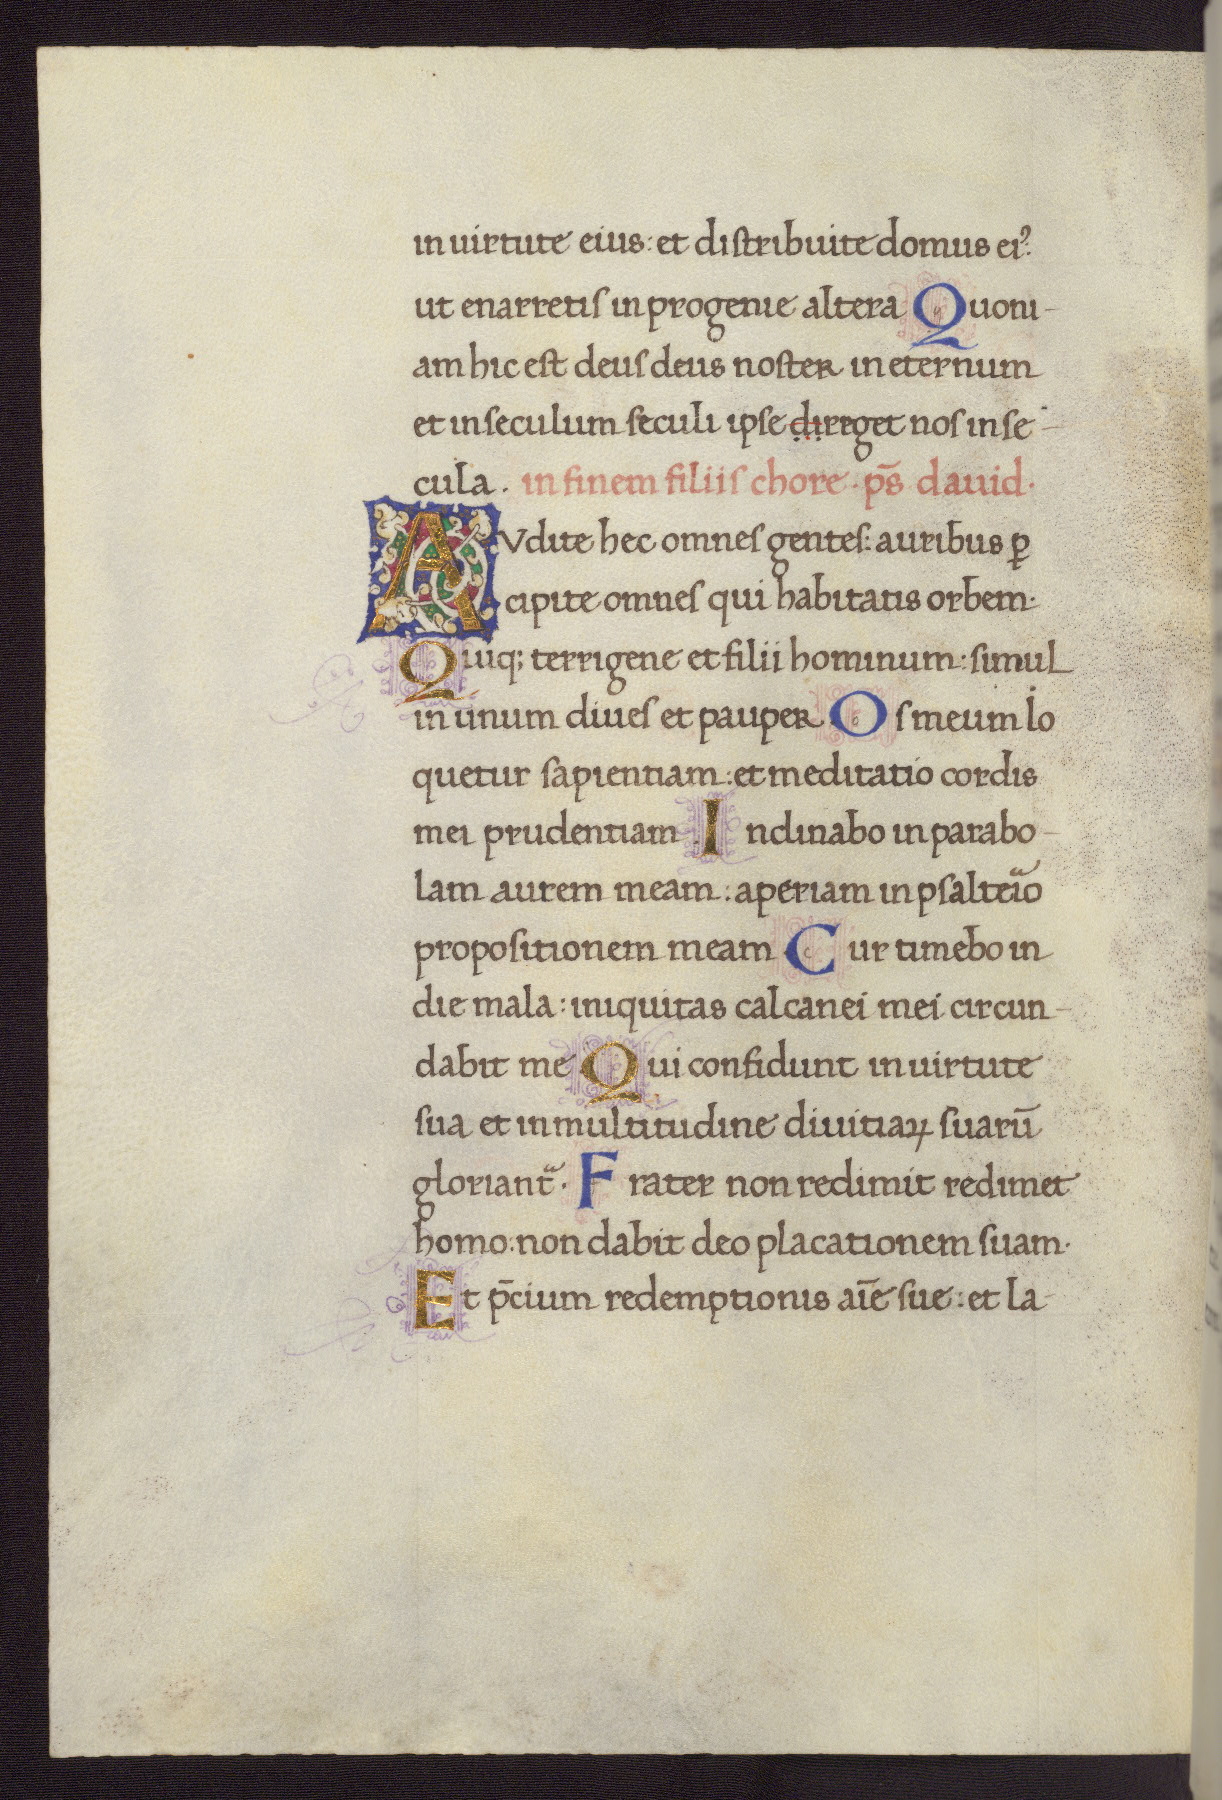 in uirtute eius: et distribuite domus ei⁹
ut enarretis in progenie altera Quoni-
am hic est deus deus noster in eternum
et in seculum seculi ipse direget nos in se-
cula. in finem filiis chore. ps̄ dauid.
AVdite hec omnes gentes: auribus ꝑ
cipite omnes qui habitatis orbem.
Quiq; terrigene et filii hominum: simul
in unum diues et pauper Os meum lo
quetur sapientiam: et meditatio cordis
mei prudentiam Inclinabo in parabo-
lam aurem meam: aperiam in psalteͣio
propositionem meam Cur timebo in
die mala: iniquitas calcanei mei circun-
dabit me Qui confidunt in uirtute
sua et in multitudine diuitiaꝝ suarū
gloriantᷓ. Frater non redimit redimet
homo: non dabit deo placationem suam.
Et p̄cium redemptionis aīe sue: et la-